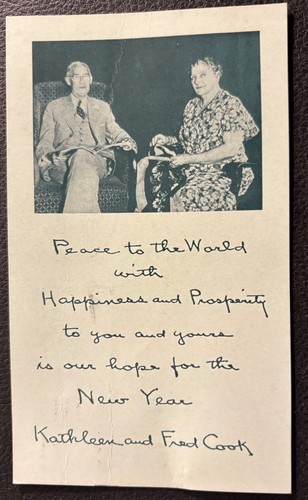 Peace to the World
with
Happiness and Prosperity
to you and yours
is our hope for the
New Year
Kathleen and Fred Cook